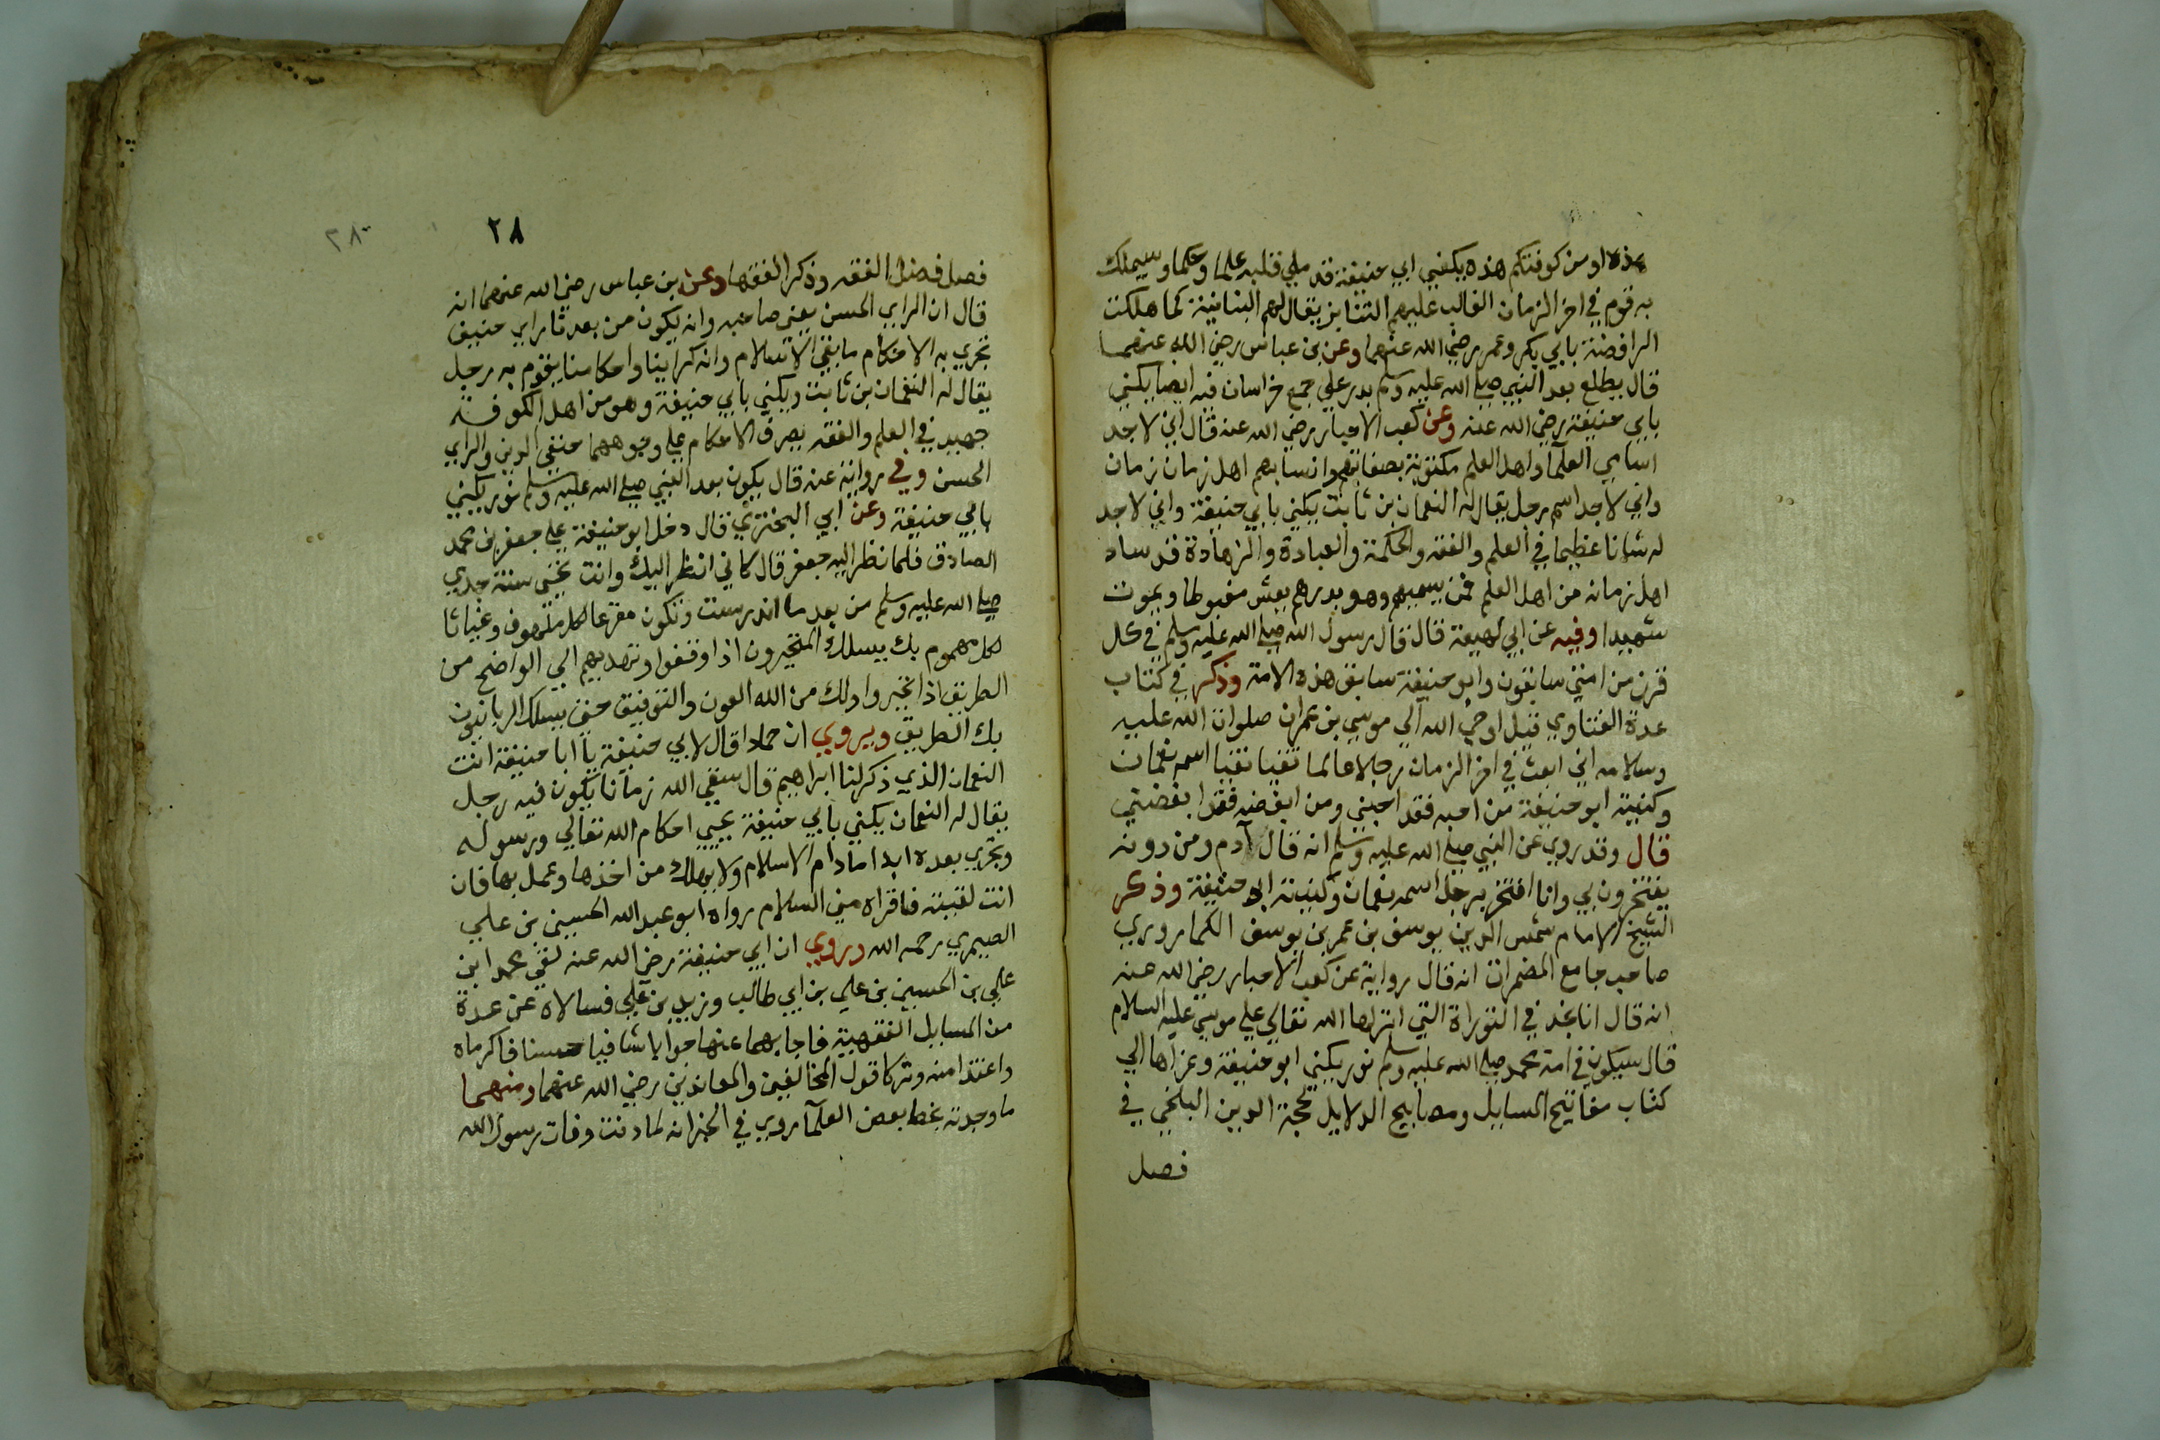 هذه او من كوفتكم هذه يكني ابي حنيفة قد ملي قلبه علما وحكما وسيهلك
به قوم في اخر الزمان الغالب عليهم التنابز يقال لهم البنانية كما هلكت
الرافضة بابي بكر وعمر رضي الله عنهما وعن بن عباس رضي الله عنهما
قال يطلع بعد النبي صلى الله عليه وسلم بدر علي جمع خراسان فيه ايضا يكني
بابي حنيفة رضي الله عنه وعن كعب الاحبار رضي الله عنه قال اني لاجد
اسامي العلمآ واهل العلم مكتوبة بصفاتهم وانسابهم اهل زمان زمان
واني لاجد اسم رجل يقال له النعمان بن ثابت يكني بابي حنيفة واني لاجد
له شانا عظيما في العلم والفقه والحكمة والعبادة والزهادة قد ساد
اهل زمانه من اهل العلم فمن وهو بدرهم يعش مغبوطا ويموت
شهيدا وفيه عن ابي لهيعة قال قال رسول الله صلى الله عليه وسلم في كل
قرن من امتي سابقون وابو حنيفة سابق هذه الامة وذكر في كتاب
عدة الفتاوي قيل اوحي الله الي موسي بن عمران صلوات الله عليه
وسلامه اني ابعث في اخر الزمان رجلا عالما تقيا نقيا اسمه نعمان
وكنيته ابو حنيفة من احبه فقد احبني ومن ابغضه فقد ابغضني
قال وقد روي عن النبي صلى الله عليه وسلم انه قال آدم ومن دونه
يفتخرون بي وانا افتخر برجل اسمه نعمان وكنيته ابو حنيفة وذكر
الشيخ الامام شمس الدين يوسف بن عمر بن يوسف الكماروري
صاحب جامع المضمرات انه قال رواية عن كعب الاحبار رضي الله عنه
انه قال انا نجد في التوراة التي انزلها الله تعالي علي موسي عليه السلام
قال سيكون في امة محمد صلى الله عليه وسلم نور يكني ابو حنيفة وعزاها الي
كتاب مفاتيح المسايل ومصابيح الدلايل لحجة الدين البلخي في
فصل
٢٨
٢٨
فصل فضل الفقه وذكر الفقها وعن بن عباس رضي الله عنهما انه
قال ان الراي الحسن يعني صاحبه وانه يكون من بعدنا راي حنيف
تجري به الاحكام ما بقي الاسلام وانه كراينا واحكامنا يقوم به رجل
يقال له النعمان بن ثابت ويكني بابي حنيفة وهو من اهل الكوفه
جهيد في العلم والفقه يصرف الاحكام علي وجوهها حنفي الدين والراي
الحسن وفي رواية عنه قال يكون بعد النبي صلى الله عليه وسلم نور يكني
بابي حنيفة وعن ابي البختري قال دخل ابو حنيفة علي جعفر بن محمد
الصادق فلما نظر اليه جعفر قال كاني انظر اليك وانت تحيى سنة جدي
صلى الله عليه وسلم من بعد ما اندرست وتكون مفزعا لكل ملهوف وغياثا
لكل مهموم بك يسلك المتحيرون اذا وقفوا وتهديهم الي الواضح من
الطريق اذا تحيروا ولك من الله العون والتوفيق حتى يسلك الربانيون
بك الطريق ويروي ان حمادا قال لابي حنيفة يا ابا حنيفة انت
النعمان الذي ذكر لنا ابراهيم قال سقي الله زمانا يكون فيه رجل
يقال له النعمان يكني بابي حنيفة يحيي احكام الله تعالي ورسوله
وتجري بعده ابدا مادام الاسلام ولا يهلك من اخذها وعمل بها فان
انت لقيته فاقراه مني السلام رواه ابو عبد الله الحسين بن علي
الصيمري رحمه الله وروي ان ابي حنيفة رضي الله عنه لقي محمد ابن
علي بن الحسين بن علي بن ابي طالب وزيد بن علي فسالاه عن عدة
من المسايل الفقهية فاجابهما عنها جوابا شافيا حسنا فاكرماه
واعتذا منه وتركا قول المخالفين والمعاندين رضي الله عنهما ومنهما
ما وجدته بخط بعض العلمآ روي في الخزانه لما دنت وفات رسول الله